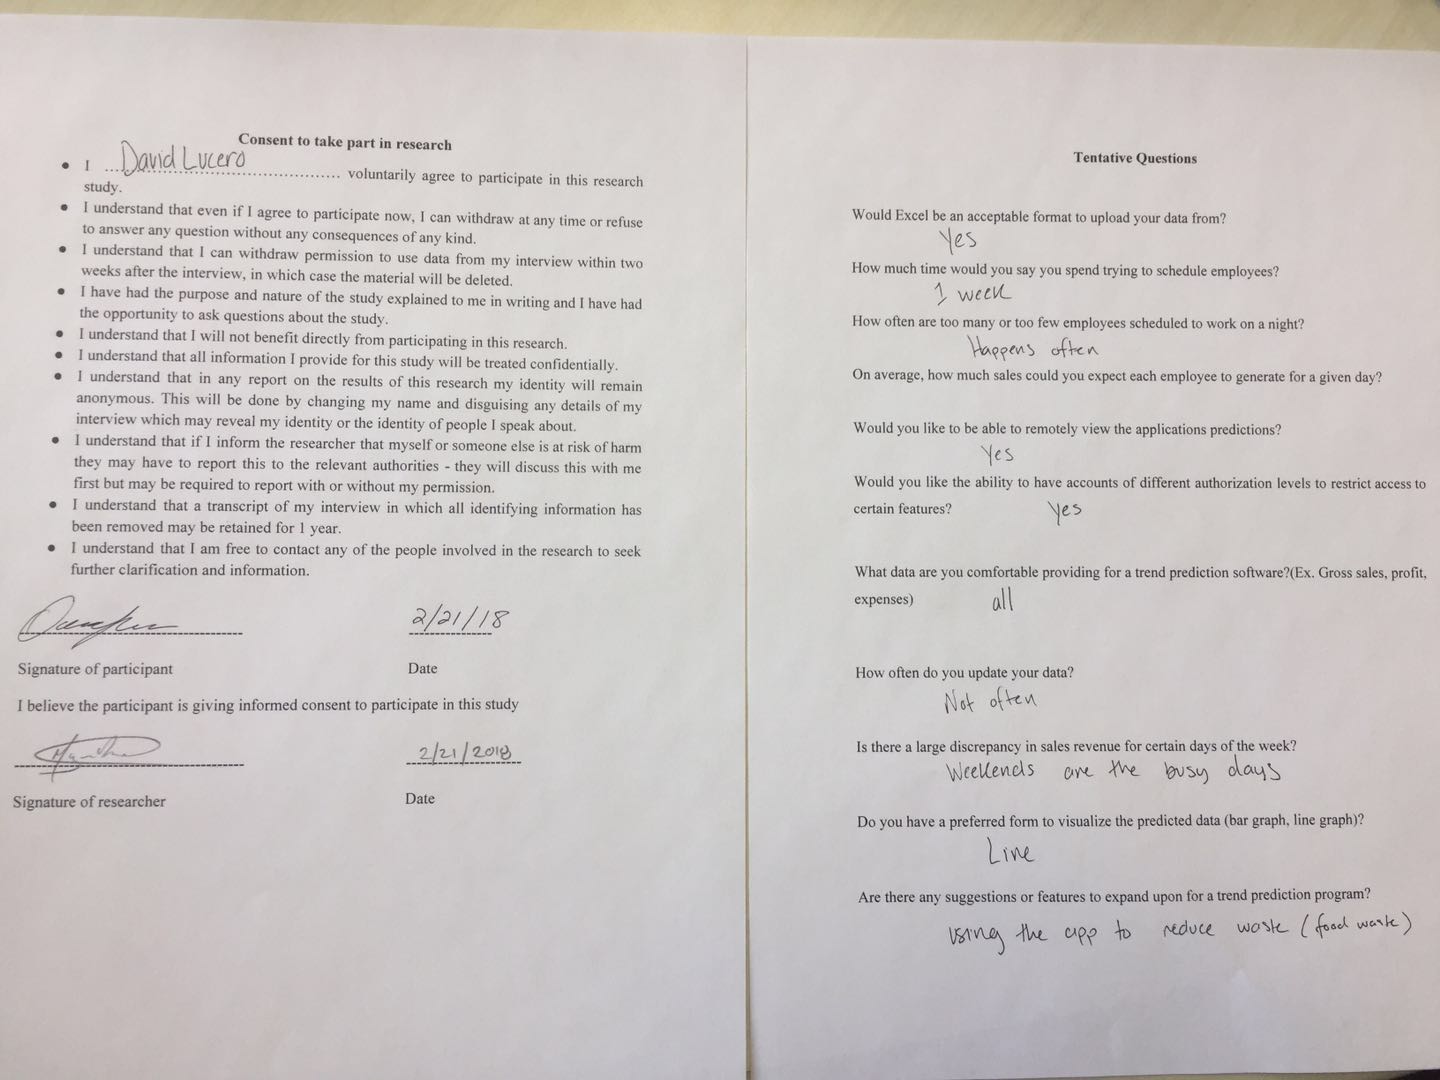 Consent to take part in research
• I ...David Lucero.......................... voluntarily agree to participate in this research
study.
• I understand that even if I agree to participate now, I can withdraw at any time or refuse
to answer any question without any consequences of any kind.
• I understand that I can withdraw permission to use data from my interview within two
weeks after the interview, in which case the material will be deleted.
• I have had the purpose and nature of the study explained to me in writing and I have had
the opportunity to ask questions about the study.
• I understand that I will not benefit directly from participating in this research.
• I understand that all information I provide for this study will be treated confidentially.
• I understand that in any report on the results of this research my identity will remain
anonymous. This will be done by changing my name and disguising any details of my
interview which may reveal my identity or the identity of people I speak about.
• I understand that if I inform the researcher that myself or someone else is at risk of harm
they may have to report this to the relevant authorities - they will discuss this with me
first but may be required to report with or without my permission.
• I understand that a transcript of my interview in which all identifying information has
been removed may be retained for 1 year.
• I understand that I am free to contact any of the people involved in the research to seek
further clarification and information.
2/21/18
Signature of participant Date
I believe the participant is giving informed consent to participate in this study
2/21/2018
Signature of researcher Date
Tentative Questions
Would Excel be an acceptable format to upload your data from?
Yes
How much time would you say you spend trying to schedule employees?
1 week
How often are too many or too few employees scheduled to work on a night?
Happens often
On average, how much sales could you expect each employee to generate for a given day?
Would you like to be able to remotely view the applications predictions?
Yes
Would you like the ability to have accounts of different authorization levels to restrict access to
certain features? Yes
What data are you comfortable providing for a trend prediction software?(Ex. Gross sales, profit,
expenses) all
How often do you update your data?
Not often
Is there a large discrepancy in sales revenue for certain days of the week?
Weekends are the busy days
Do you have a preferred form to visualize the predicted data (bar graph, line graph)?
Line
Are there any suggestions or features to expand upon for a trend prediction program?
using the app to reduce waste (food waste)